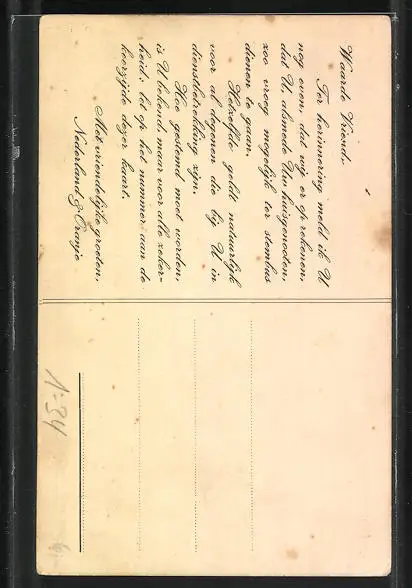 Waarde Vriend.
Ter herinnering meld ik U
nog even, dat wij er op rekenen,
dat U, alsmede Uw huisgenooten,
zoo vroeg mogelijk ter stembus
dienen te gaan.
Hetzelfde geldt natuurlijk
voor al degenen die bij U in
dienstbetrekking zijn.
Hoe gestemd moet worden,
is U bekend, maar voor alle zeker-
heid: let op het nummer aan de
keerzijde dezer kaart.
Met vriendelijke groeten,
Nederland & Oranje
1=34